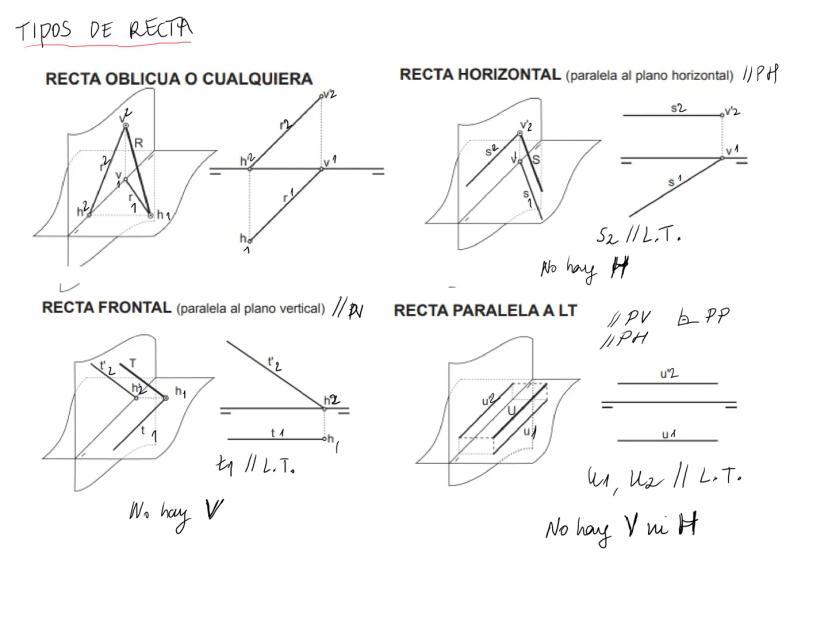 TIPOS DE RECTA
RECTA OBLICUA O CUALQUIERA
v2
R
r2
v1
r1
h2
h1
v2
r2
h2
v1
r1
h1
RECTA HORIZONTAL (paralela al plano horizontal) //PH
v'2
s2
v1
S
s1
s2
v'2
v1
s1
S2 // L.T.
No hay H
RECTA FRONTAL (paralela al plano vertical) //PV
t'2
T
h2
h1
t1
t'2
h2
t1
h1
t1 // L.T.
No hay V
RECTA PARALELA A LT
//PV
PP
//PH
u2
U
u1
u'2
u1
U1, U2 // L.T.
No hay V ni H